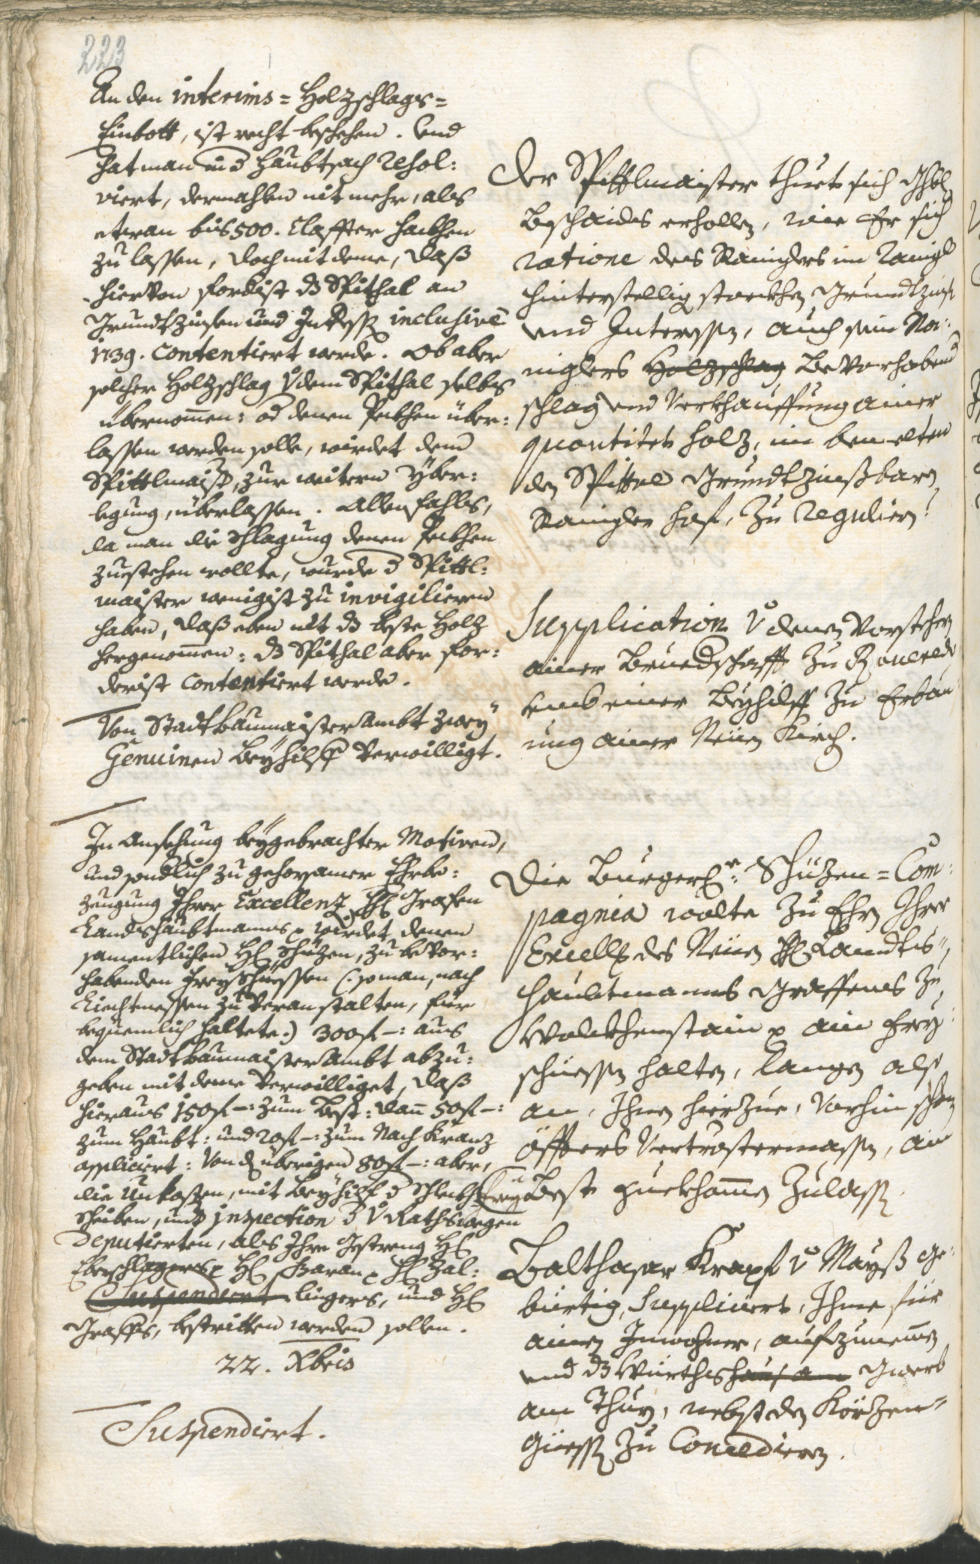 223
An den interims=Holzschlags=
Einbott, ist recht beschehen. Und
hat man in d haubtsach resol:
viert, dermahlen nit mehr, als
etwan bis 500. Claffter hackhen
zu lassen, doch mit deme, daß
hiervon fordist ds Spithal an
Grundtzinsen und Interesse inclusive
1739. contentiert werde. Ob aber
solcher Holzschlag v dem Spithal selbs
übernommen: od denen Peckhen über:
lassen werden solle, würdet dem
Spittlmaister, zur weitern Yber:
legung, überlassen. Allenfahls,
da man die Schlagung denen Peckhen
zuestehen wollte, wurde d Spittl:
maister wenigist zu invigilieren
haben, daß eben nit ds beste Holz
hergenommen: ds Spithal aber for:
derist contentiert werde.
Von Stadtbaumaister Ambt zwey
Genuinen Beyhilff verwilligt.
In Ansehung beygebrachter Motiven,
und sondlich zu gehorsamer Ehrbe:
zeugung Ihrer Excellenz H Grafen
Landtshaubtmanns p würdet denen
samentlichen H Schüzen, zu bevor:
habenden Freyschiessen (: so man, nach
Liechtmessen zu veranstalten, für
bequemlich haltete:) 300f –: aus
dem Stadtbaumaister Ambt abzu:
geben mit deme verwilliget, daß
hieraus 150f –: zum Best: dann 50f –:
zum Haubt: und 20f –: zum Nach Kranz
appliciert: Von d überigen 80f –: aber,
die Unkosten, mit Beyhilf d Schlecht
Scheiben, und inspection d v Raths wegen
Deputierten, als Ihro Gestreng H
H Zal:
Suspendiert lingers, und H
Graffs, bestritten werden sollen.
22. Xbris
Suspendiert.
Der Spittlmaister thuet sich
Beschaids erhollen, wie Er sich
ratione des Rainglers im
hinterstellig Grundtzins
und Interessen, auch sein Rai:
niglers Holzschlag bevorhabend
schlag und Verkhauffung ainer
quantitet holz, im bemelten
den Spittal Grundtzinßbarn
Raingler hof, zu regulieren?
Supplication v denen Vorstehern
ainer Bruedschafft zu Roveredo
umb einer Beyhilff zu Erbau
ung ainer Neuen Kirch.
Die Burgerl: Schüzen=Com:
pagnia wolte zu Ehrn Ihrer
Excell. des Neuen H Landts=
haubtmanns Graffens zu
Wolckhenstain p ain Frey
schiessen halten, langen also
an, Ihnen hierzue, vorhin schon
öffters Vertröstermassen, ain
frey Best zuekhommen zulassen.
Balthasar Krapf v Mayß ge:
bürtig, Suppliciert, Ihme für
ainen Inwohner, aufzunemmen
und ds Würthshaus am Gwerb
am Thurn, nebst den Körzen=
Giessen zu Concedieren.